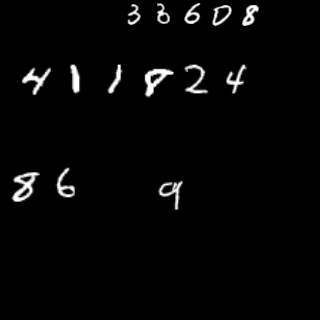 33608
411824
86 9